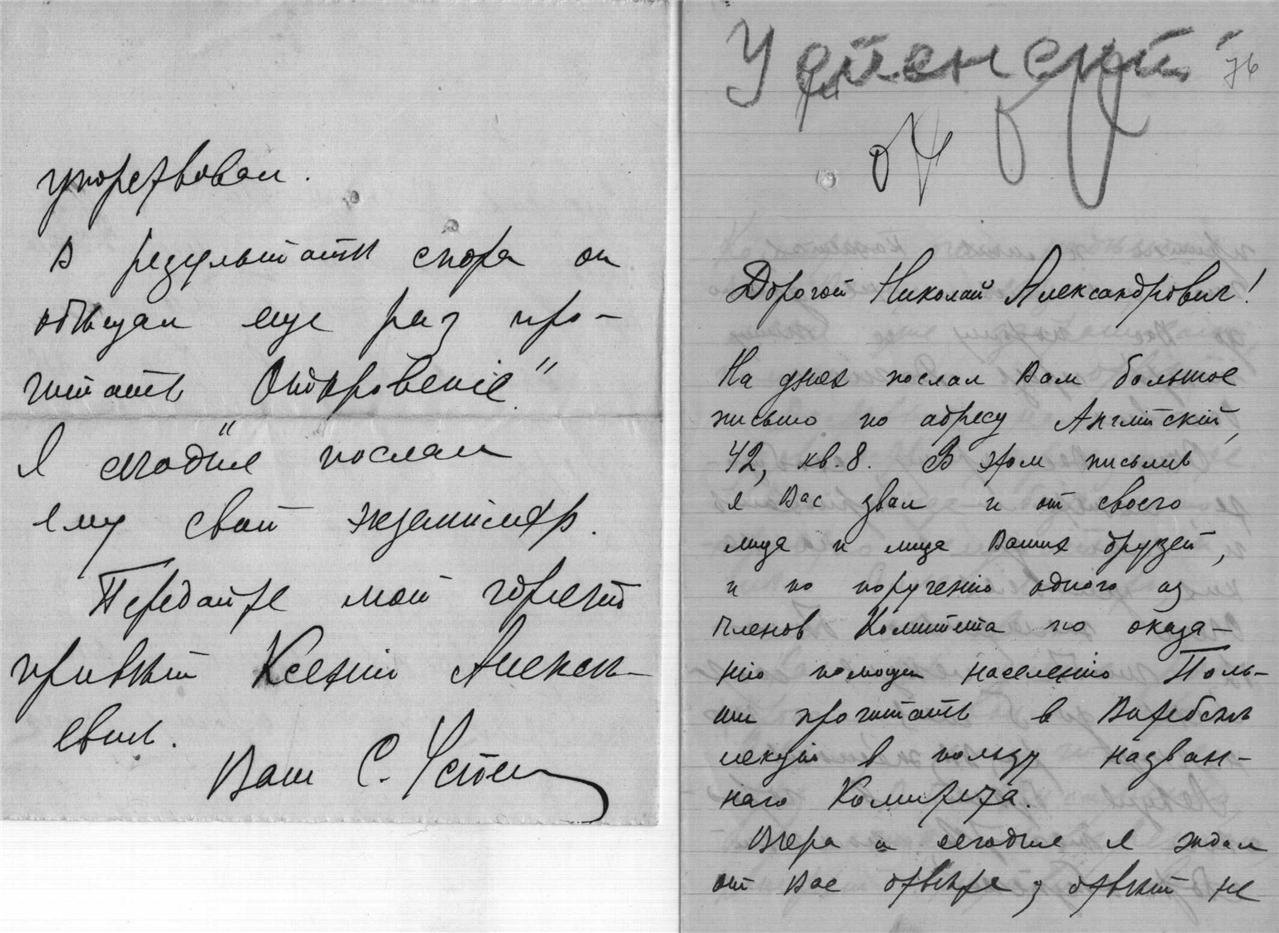 упорствовал.
В результатѣ спора он
обѣщал еще раз про-
читать „Откровеніе".
Я сегодня послал
ему свой экземпляр.
Передайте мой горячій
привѣт Ксеніи Алексѣ-
евнѣ.
Ваш С.
Успенский 76
Дорогой Николай Александрович!
На днях послал Вам большое
письмо по адресу Англійскій,
42, кв. 8. В этом письмѣ
я Вас звал и от своего
лица и лица Ваших друзей,
и по порученію одного из
членов Комитета по оказа-
нію помощи населенію Поль-
ши прочитать в Витебскѣ
лекцію в пользу назван-
наго Комитета.
Вчера и сегодня я ждал
от Вас отвѣта, отвѣт не